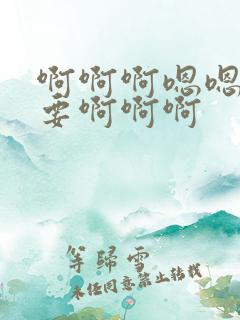 啊啊啊嗯嗯
要啊啊啊
等歸雪
未经同意禁止转载